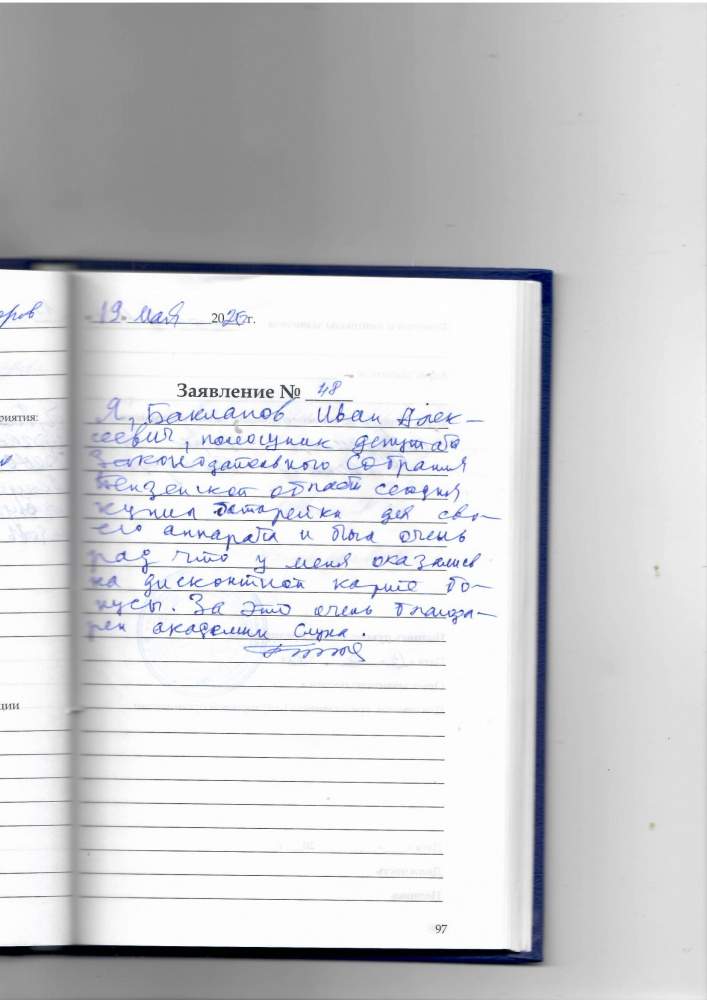 аров
риятия:
ции
19 мая 2026 г.
Заявление № 48
Я, Бакланов Иван Алек-
сеевич, помощник депутата
Законодательного Собрания
Пензенской области сегодня
купил батарейки для сво-
его аппарата и был очень
рад что у меня оказались
на дисконтной карте бо-
нусы. За это очень благода-
рен академии Слуха.
97